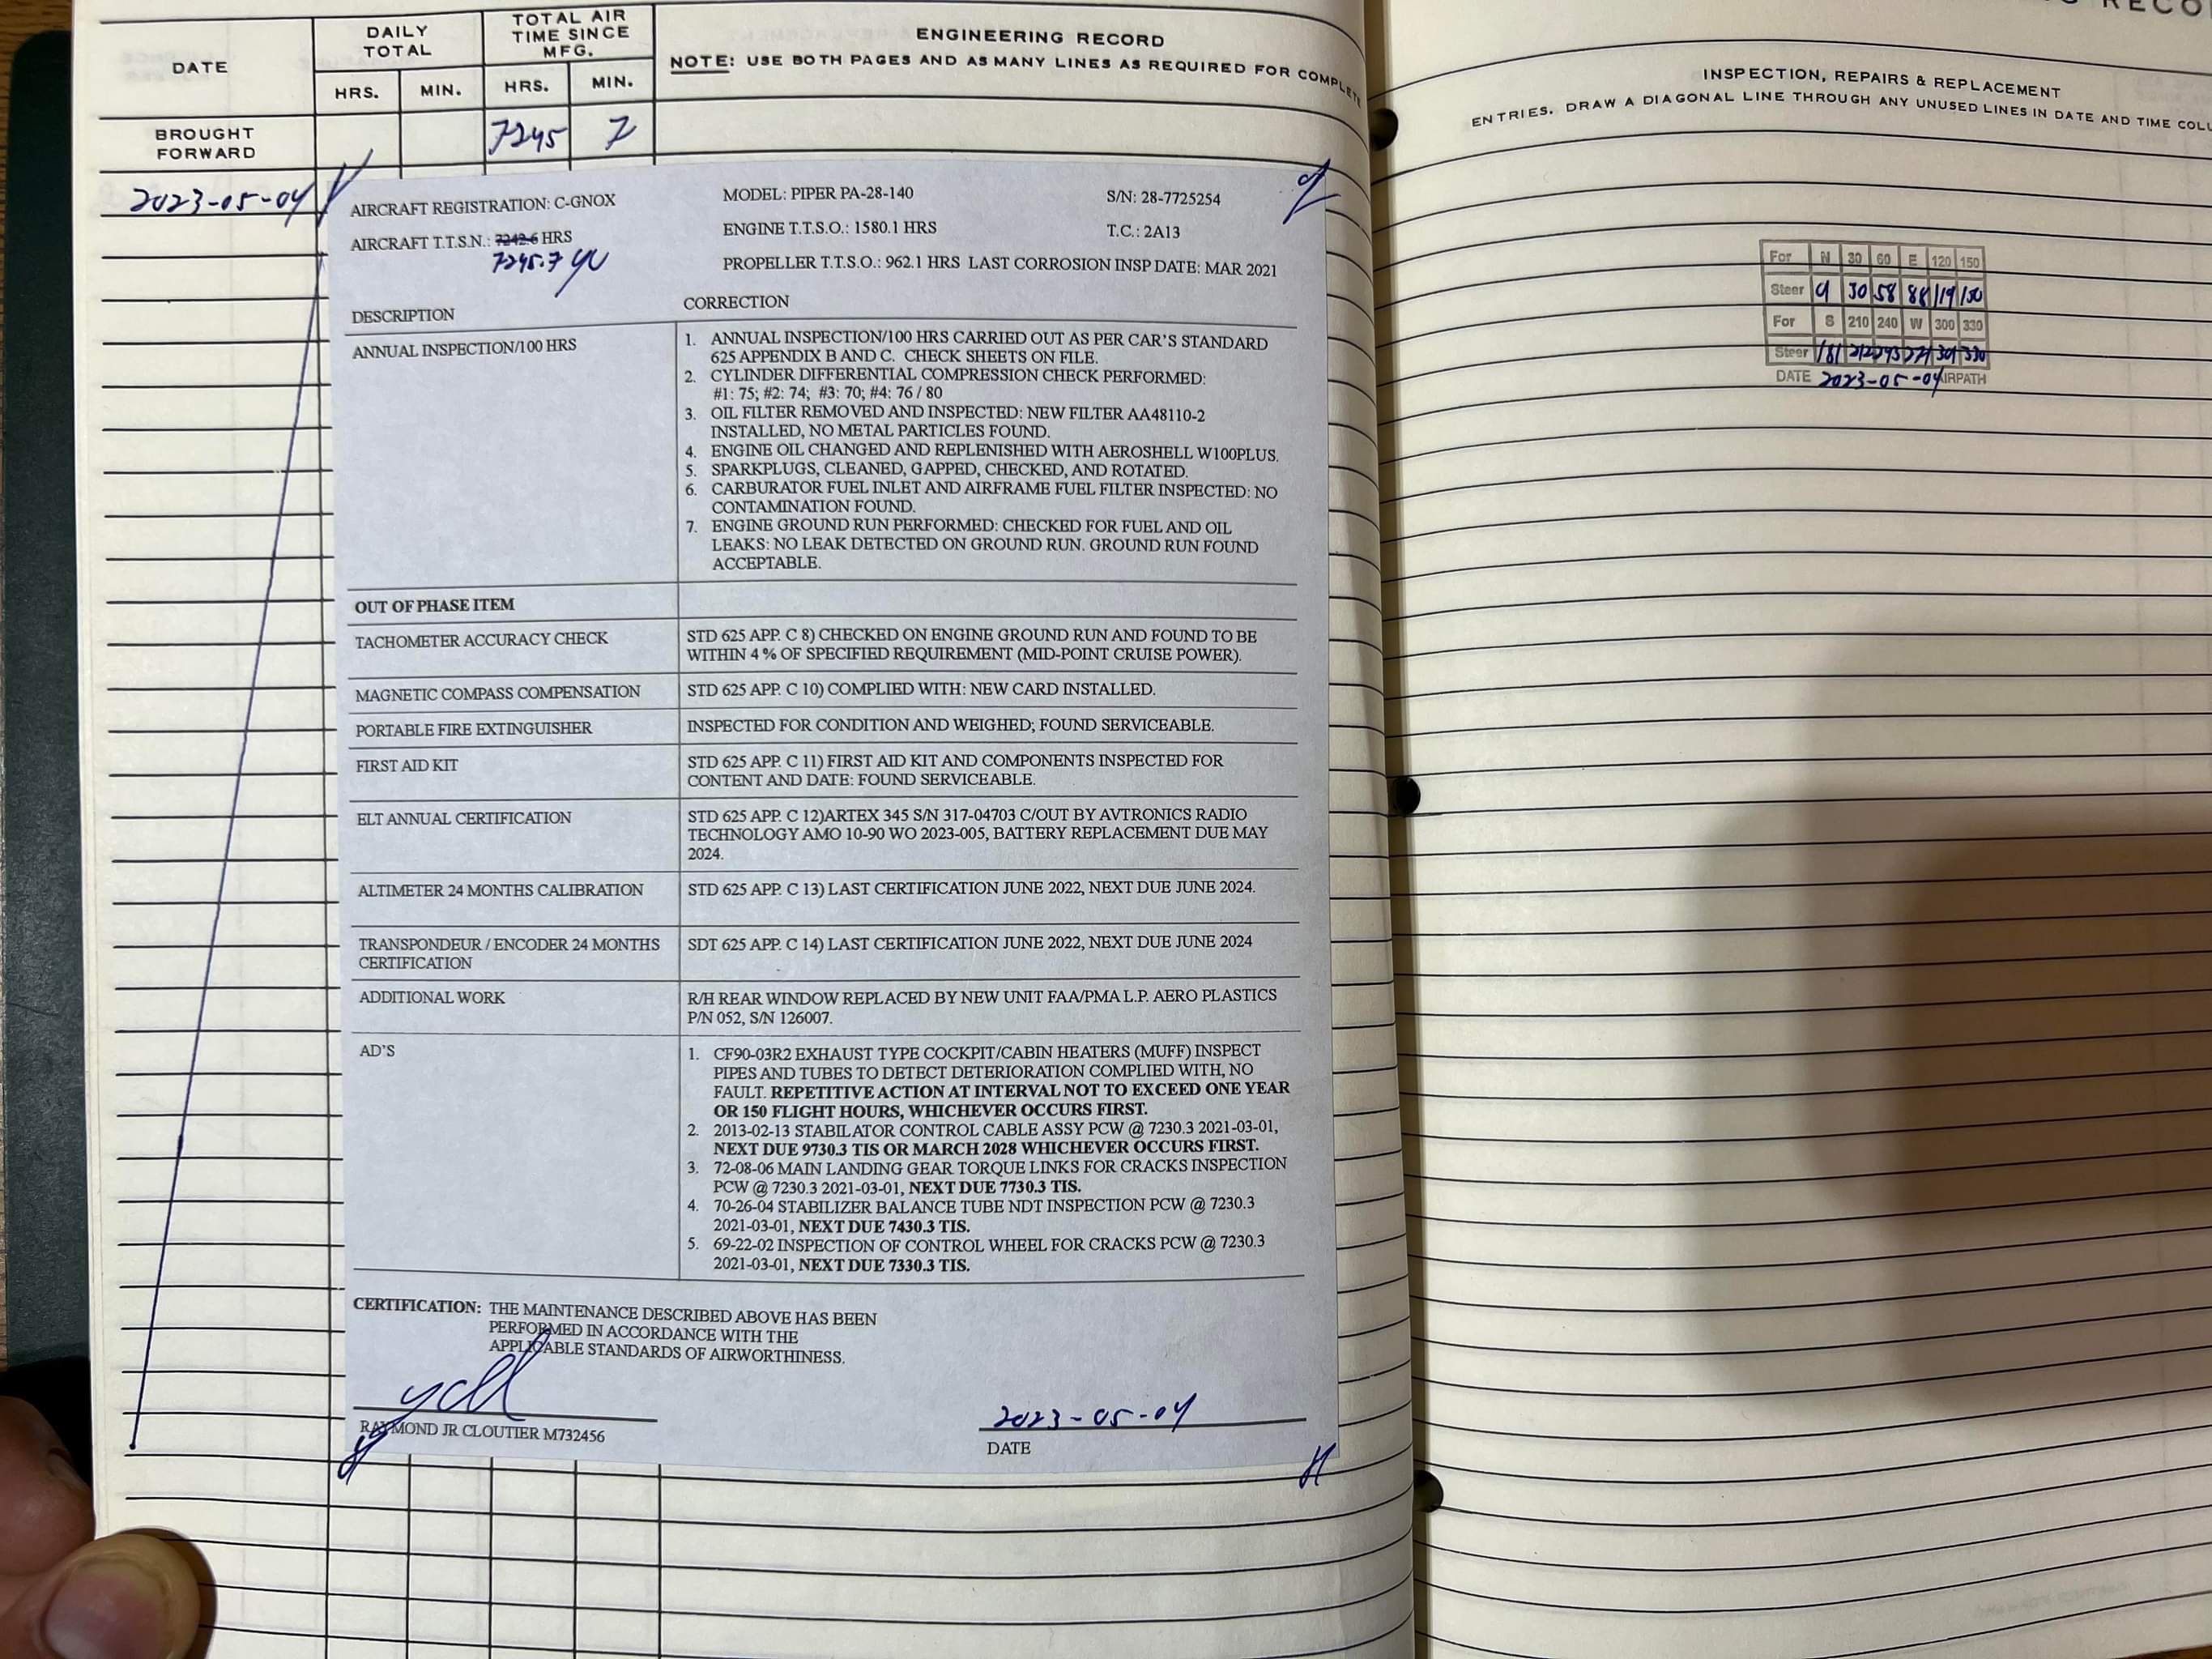 DATE
DAILY TOTAL
TOTAL AIR TIME SINCE MFG.
HRS. MIN. HRS. MIN.
ENGINEERING RECORD
NOTE: USE BOTH PAGES AND AS MANY LINES AS REQUIRED FOR COMPLETE
BROUGHT FORWARD 7245 7
2023-05-04
AIRCRAFT REGISTRATION: C-GNOX MODEL: PIPER PA-28-140 S/N: 28-7725254
AIRCRAFT T.T.S.N.: 7242.6 HRS ENGINE T.T.S.O.: 1580.1 HRS T.C.: 2A13
7245.7
PROPELLER T.T.S.O.: 962.1 HRS LAST CORROSION INSP DATE: MAR 2021
DESCRIPTION CORRECTION
ANNUAL INSPECTION/100 HRS
1. ANNUAL INSPECTION/100 HRS CARRIED OUT AS PER CAR'S STANDARD
625 APPENDIX B AND C. CHECK SHEETS ON FILE.
2. CYLINDER DIFFERENTIAL COMPRESSION CHECK PERFORMED:
#1: 75; #2: 74; #3: 70; #4: 76 / 80
3. OIL FILTER REMOVED AND INSPECTED: NEW FILTER AA48110-2
INSTALLED, NO METAL PARTICLES FOUND.
4. ENGINE OIL CHANGED AND REPLENISHED WITH AEROSHELL W100PLUS.
5. SPARKPLUGS, CLEANED, GAPPED, CHECKED, AND ROTATED.
6. CARBURATOR FUEL INLET AND AIRFRAME FUEL FILTER INSPECTED: NO
CONTAMINATION FOUND.
7. ENGINE GROUND RUN PERFORMED: CHECKED FOR FUEL AND OIL
LEAKS: NO LEAK DETECTED ON GROUND RUN. GROUND RUN FOUND
ACCEPTABLE.
OUT OF PHASE ITEM
TACHOMETER ACCURACY CHECK
STD 625 APP. C 8) CHECKED ON ENGINE GROUND RUN AND FOUND TO BE
WITHIN 4 % OF SPECIFIED REQUIREMENT (MID-POINT CRUISE POWER).
MAGNETIC COMPASS COMPENSATION STD 625 APP. C 10) COMPLIED WITH: NEW CARD INSTALLED.
PORTABLE FIRE EXTINGUISHER INSPECTED FOR CONDITION AND WEIGHED; FOUND SERVICEABLE.
FIRST AID KIT
STD 625 APP. C 11) FIRST AID KIT AND COMPONENTS INSPECTED FOR
CONTENT AND DATE: FOUND SERVICEABLE.
ELT ANNUAL CERTIFICATION
STD 625 APP. C 12)ARTEX 345 S/N 317-04703 C/OUT BY AVTRONICS RADIO
TECHNOLOGY AMO 10-90 WO 2023-005, BATTERY REPLACEMENT DUE MAY
2024.
ALTIMETER 24 MONTHS CALIBRATION STD 625 APP. C 13) LAST CERTIFICATION JUNE 2022, NEXT DUE JUNE 2024.
TRANSPONDEUR / ENCODER 24 MONTHS SDT 625 APP. C 14) LAST CERTIFICATION JUNE 2022, NEXT DUE JUNE 2024
CERTIFICATION
ADDITIONAL WORK
R/H REAR WINDOW REPLACED BY NEW UNIT FAA/PMA L.P. AERO PLASTICS
P/N 052, S/N 126007.
AD'S
1. CF90-03R2 EXHAUST TYPE COCKPIT/CABIN HEATERS (MUFF) INSPECT
PIPES AND TUBES TO DETECT DETERIORATION COMPLIED WITH, NO
FAULT. REPETITIVE ACTION AT INTERVAL NOT TO EXCEED ONE YEAR
OR 150 FLIGHT HOURS, WHICHEVER OCCURS FIRST.
2. 2013-02-13 STABILATOR CONTROL CABLE ASSY PCW @ 7230.3 2021-03-01,
NEXT DUE 9730.3 TIS OR MARCH 2028 WHICHEVER OCCURS FIRST.
3. 72-08-06 MAIN LANDING GEAR TORQUE LINKS FOR CRACKS INSPECTION
PCW @ 7230.3 2021-03-01, NEXT DUE 7730.3 TIS.
4. 70-26-04 STABILIZER BALANCE TUBE NDT INSPECTION PCW @ 7230.3
2021-03-01, NEXT DUE 7430.3 TIS.
5. 69-22-02 INSPECTION OF CONTROL WHEEL FOR CRACKS PCW @ 7230.3
2021-03-01, NEXT DUE 7330.3 TIS.
CERTIFICATION: THE MAINTENANCE DESCRIBED ABOVE HAS BEEN
PERFORMED IN ACCORDANCE WITH THE
APPLICABLE STANDARDS OF AIRWORTHINESS.
2023-05-04
RAYMOND JR CLOUTIER M732456 DATE
INSPECTION, REPAIRS & REPLACEMENT
ENTRIES. DRAW A DIAGONAL LINE THROUGH ANY UNUSED LINES IN DATE AND TIME COLU
For N 30 60 E 120 150
Steer 30 58 88 119 150
For S 210 240 W 300 330
Steer 181 212 301 330
DATE 2023-05-04 AIRPATH